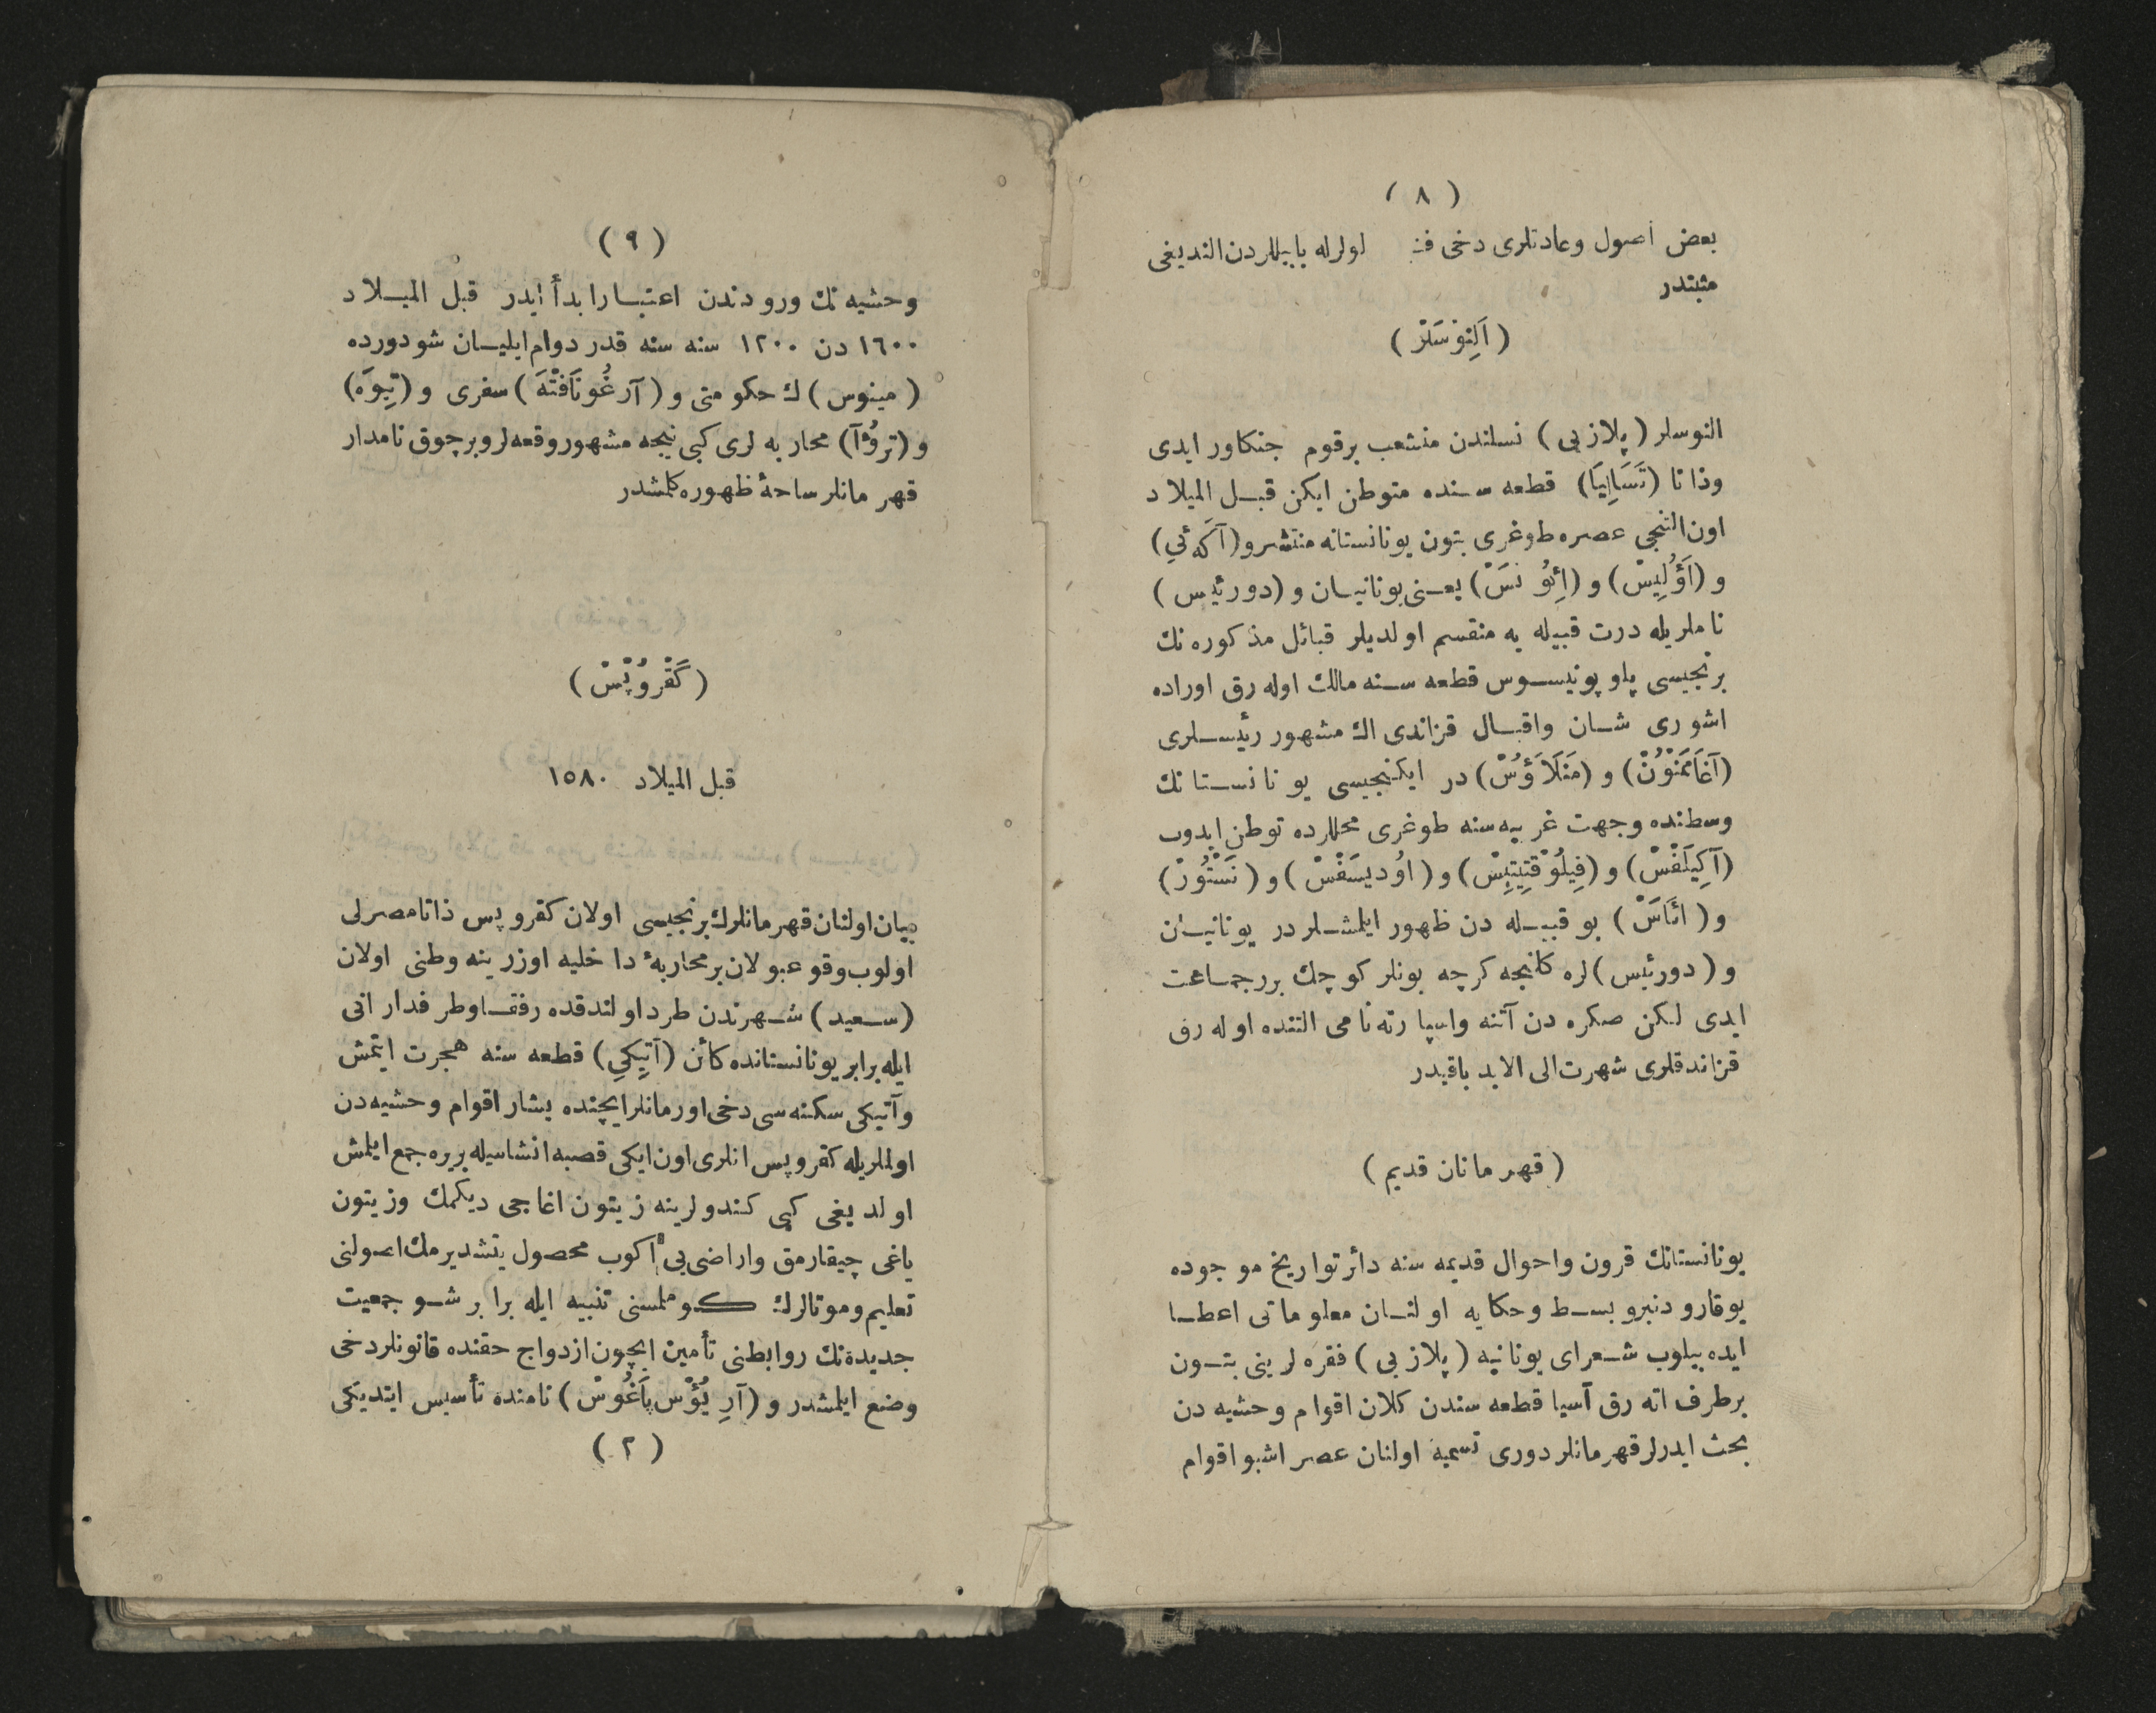 ( ٨ )
بعض اصول وعادتلری دخی لولرله بابیللردن الندیغی
مثبتدر
( اَلِنُوسَلَرْ )
النوسلر ( پلازبی ) نسلندن منشعب برقوم جنكاور ایدی
وذاتا (تَسَالِیَا) قطعه سنده متوطن ایكن قبل المیلاد
اون التنجی عصره طوغری بتون یونانستانه منتشر و (آكَه ئی)
و (اَؤُلِیسْ) و (اِئوُ نَسْ) یعنی یونانیان و (دورئیس)
نا ملریله درت قبیله یه منقسم اولدیلر قبائل مذكوره نك
برنجیسی پلو پونیسوس قطعه سنه مالك اوله رق اوراده
اشو ری شان واقبال قزاندی اك مشهور رئیسلری
(آغَامَمْنُوُنْ) و (مَنَلَاؤُسْ) در ایكنجیسی یونانستانك
وسطنده وجهت غربیه سنه طوغری محللرده توطن ایدوب
(آكِیلَفْسْ) و (فِیلُوقْتِیتِیسْ) و (اوُدیسَفْسْ) و (نَسْتُورْ)
و ( ائَاسْ ) بو قبیله دن ظهور ایلمشلر در یونانیان
و ( دورئیس ) لره كلنجه كرچه بونلر كوچك برر جماعت
ایدی لكن صكره دن آتنه واسپا رته نامی التنده اوله رق
قزاندقلری شهرت الی الابد باقیدر
( قهرمانان قدیم )
یونانستانك قرون واحوال قدیمه سنه دائر تواریخ موجوده
یوقارودنبرو بسط وحكایه اولنان معلوماتی اعطا
ایده بیلوب شعرای یونانیه ( پلازبی ) فقره لرینی بتون
برطرف اته رق آسیا قطعه سندن كلان اقوام وحشیه دن
بحث ایدرلر قهرمانلر دوری تسمیه اولنان عصر اشبو اقوام
( ٩ )
وحشیه نك ورودندن اعتبارا بدأ ایدر قبل المیلاد
١٦٠٠ دن ١٢٠٠ سنه سنه قدر دوام ایلیان شو دورده
( مینوس ) ك حكومتی و ( آرغُونَافْتَه ) سفری و (تِیوَه)
و (تروُآ) محاربه لری كبی نیجه مشهور وقعه لر وبرچوق نامدار
قهرمانلر ساحۀ ظهوره كلمشدر
( كَقْرُوپْسْ )
قبل المیلاد ١٥٨٠
بیان اولنان قهرمانلرك برنجیسی اولان كقروپس ذاتا مصرلی
اولوب وقوعبولان بر محاربۀ داخلیه اوزرینه وطنی اولان
( سعید ) شهرندن طرد اولندقده رفقا وطرفدارانی
ایله برابر یونانستانده كائن (آتِیكیِ) قطعه سنه هجرت ایتمش
وآتیكی سكنه سی دخی اورمانلر ایچنده یشار اقوام وحشیه دن
اولملریله كقروپس انلری اون ایكی قصبه انشاسیله بریره جمع ایلمش
اولدیغی كبی كندولرینه زیتون اغاجی دیكمك وزیتون
یاغی چیقارمق واراضی یی اكوب محصول یتشدیرمك اصولنی
تعلیم وموتالرك كوملسنی تنبیه ایله برابر شو جمعیت
جدیده نك روابطنی تأمین ایچون ازدواج حقنده قانونلر دخی
وضع ایلمشدر و (آرِیُؤْس پَاغُوسْ) نامنده تأسیس ایتدیكی
( ٢ )